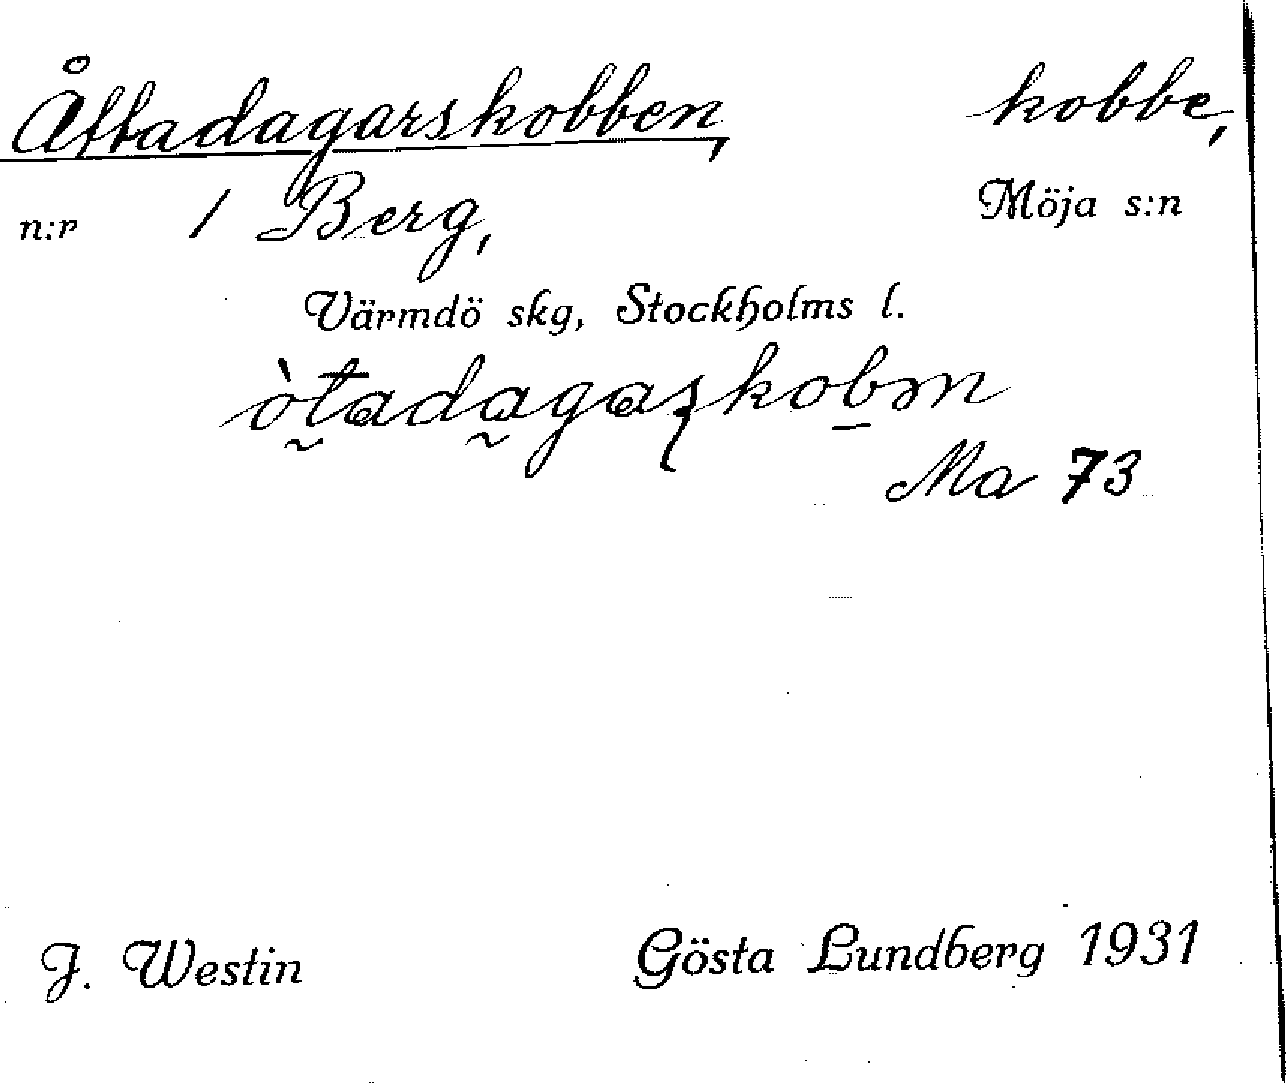 Åttadagarskobben, kobbe,
n:r 1 Berg, Möja s:n
Värmdö skg, Stockholms l.
òtadagaʂkobən
Ma 73
J. Westin Gösta Lundberg 1931